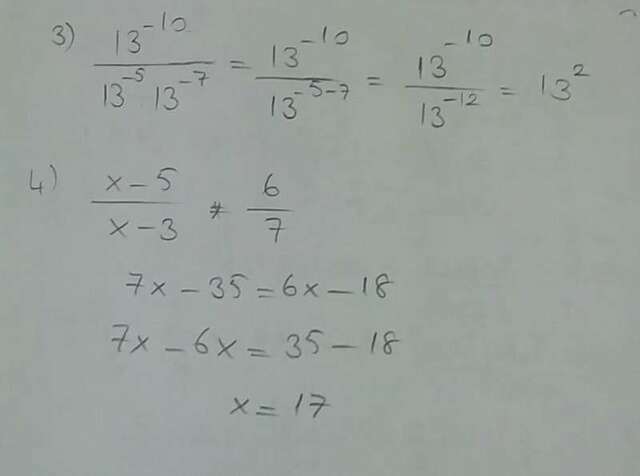 3) 13^-10 / 13^-5 13^-7 = 13^-10 / 13^-5-7 = 13^-10 / 13^-12 = 13^2
4) x-5 / x-3 * 6 / 7
7x - 35 = 6x - 18
7x - 6x = 35 - 18
x = 17